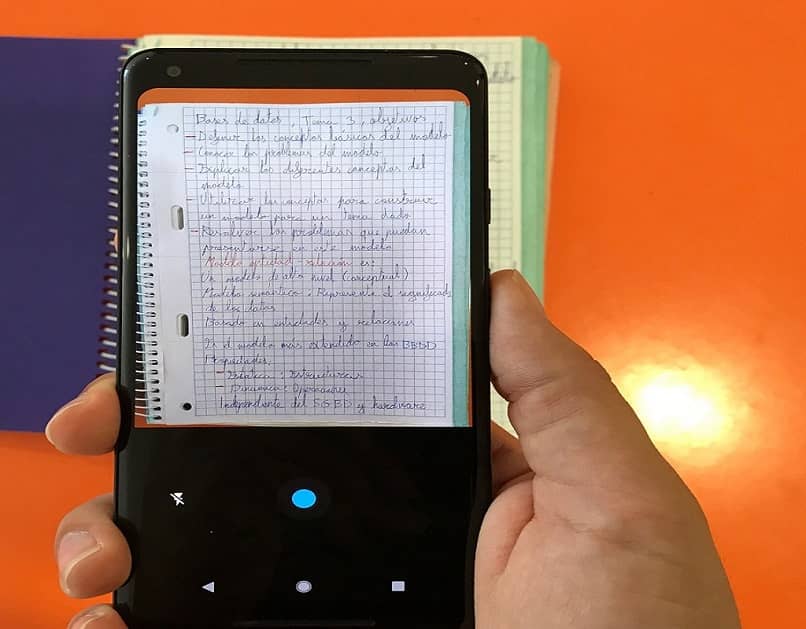 Bases de datos, Tema 3, objetivos
- Definir los conceptos básicos del modelo
- Conocer los problemas del modelo
- Explicar los diferentes conceptos del
modelo
- Utilizar los conceptos para construir
un modelo para un tema dado
- Resolver los problemas que puedan
presentarse en este modelo
Modelo entidad relación es:
Un modelo de alto nivel (conceptual)
Modelo semántico: Representa el significado
de los datos
Basado en entidades y relaciones
Es el modelo más extendido en las BBDD
Propiedades
- Estática: Estructuras
- Dinámica: Operaciones
Independiente del SGBD y hardware